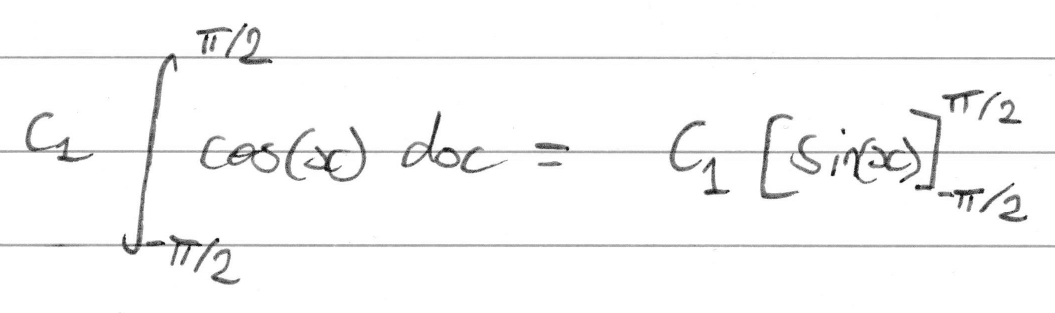 C₁ ∫_{-π/2}^{π/2} cos(x) dx = C₁ [sin(x)]_{-π/2}^{π/2}